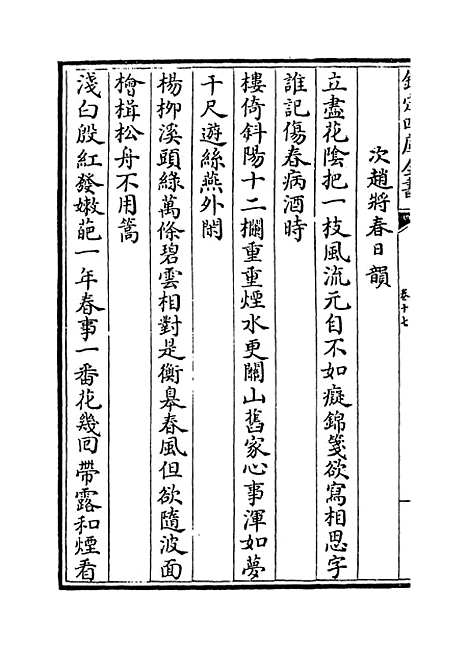 欽定四庫全書
卷十七
次趙將春日韻
立盡花陰把一枝風流元自不如癡錦箋欲寫相思字
誰記傷春病酒時
樓倚斜陽十二欄重重煙水更關山舊家心事渾如夢
千尺遊絲燕外閒
楊柳溪頭綠萬條碧雲相對是衡臯春風但欲隨波面
檜楫松舟不用篙
淺白殷紅發嫩葩一年春事一番花幾回帶露和煙看